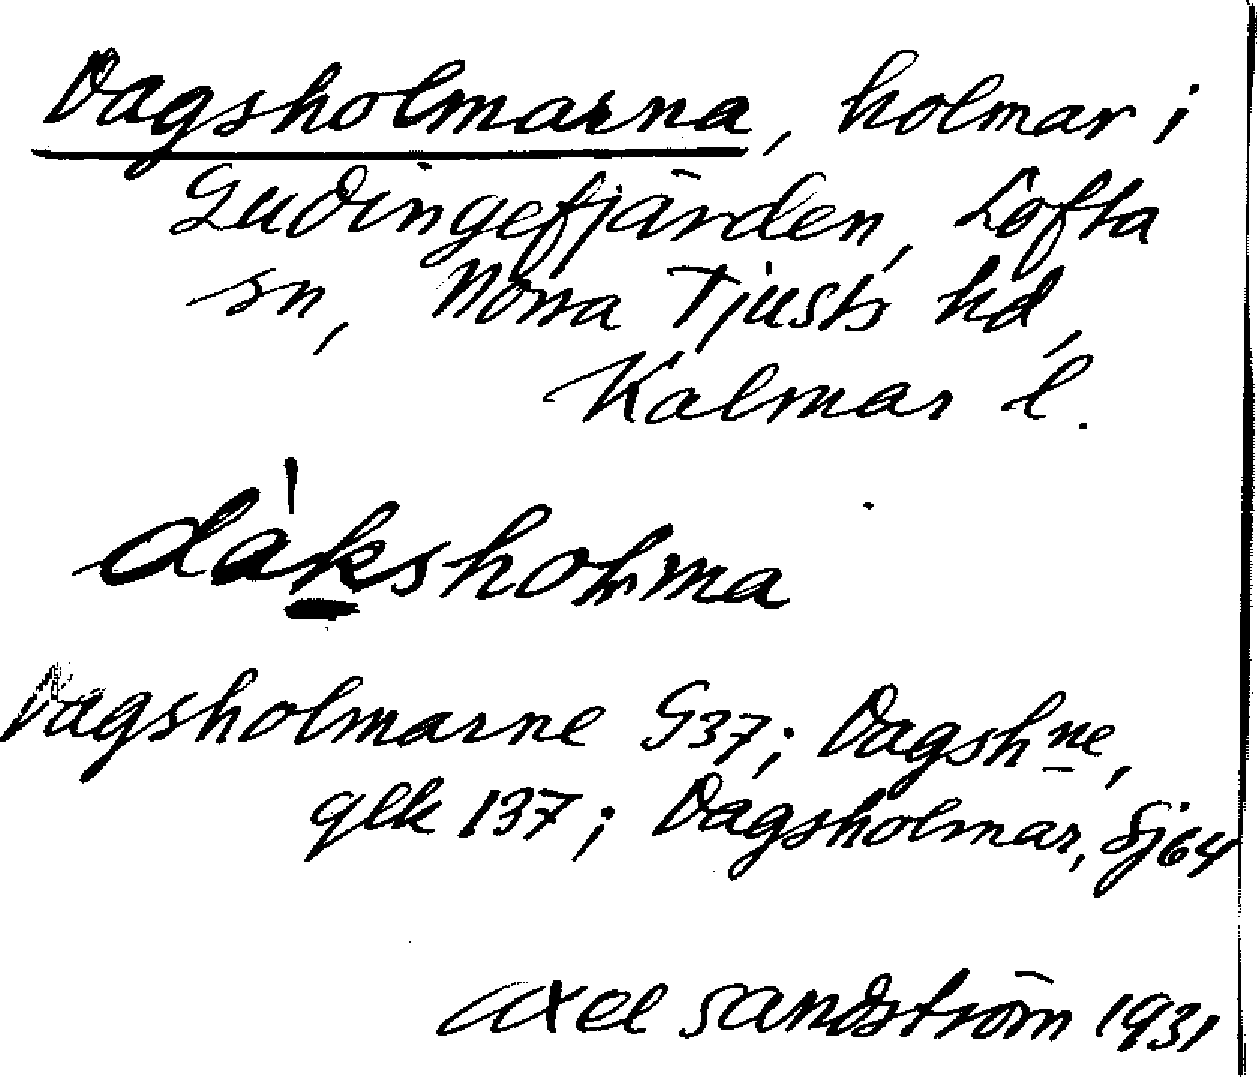 Dagsholmarna, holmar i
Gudingefjärden, Lofta
sn, Norra Tjusts hd,
Kalmar l.
Dagsholmarne G37; Dagshne,
glk 137; Dagsholmar, Sj64
Axel Sandström 1931